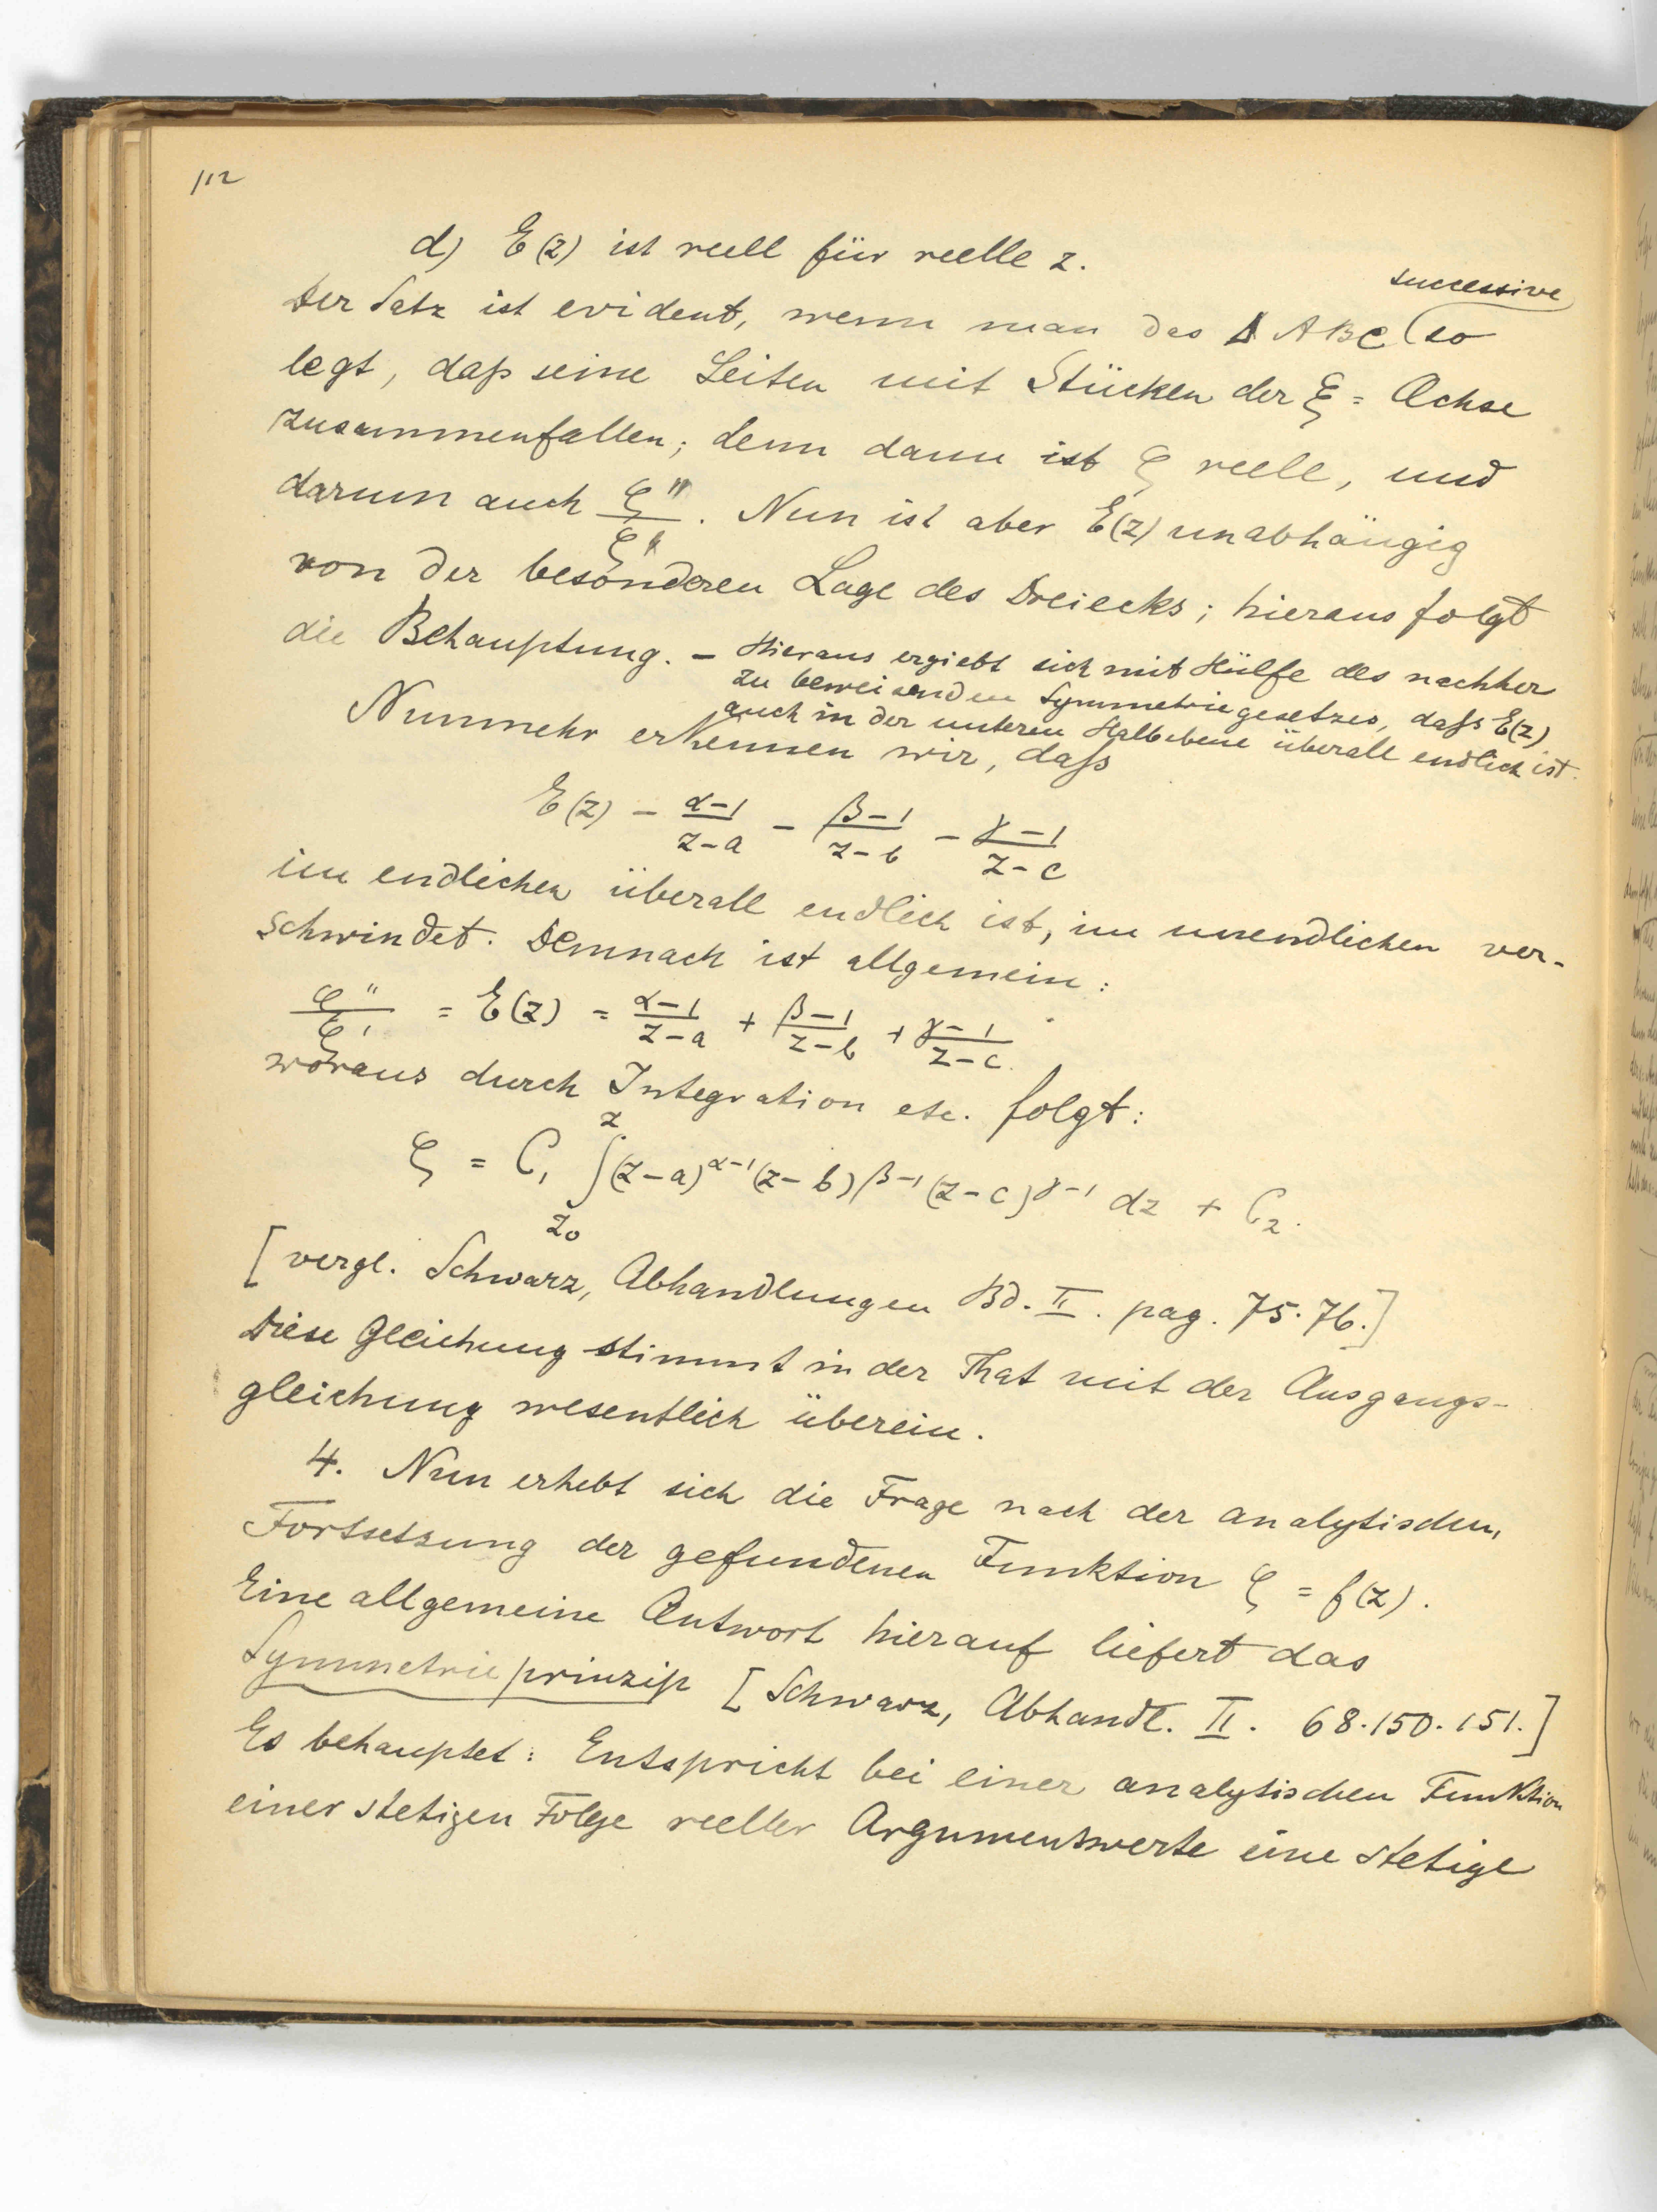 112
d) E(z) ist reell für reelle z.
successive
Der Satz ist evident, wenn man das Δ ABC (so
legt, daß seine Seiten mit Stücken der ξ = Achse
zusammenfallen; denn dann ist ζ reell, und
darum auch ζ''/ζ'. Nun ist aber E(z) unabhängig
von der besonderen Lage des Dreiecks; hieraus folgt
die Behauptung. – Hieraus ergiebt sich mit Hülfe des nachher
zu beweisenden Symmetriegesetzes, daß E(z)
auch in der unteren Halbebene überall endlich ist.
Nunmehr erkennen wir, daß
E(z) - (α-1)/(z-a) - (β-1)/(z-b) - (γ-1)/(z-c)
im endlichen überall endlich ist, im unendlichen ver-
schwindet. Demnach ist allgemein:
ζ''/ζ' = E(z) = (α-1)/(z-a) + (β-1)/(z-b) + (γ-1)/(z-c).
woraus durch Integration etc. folgt:
ζ = C₁ ∫_{z₀}^{z} (z-a)^{α-1} (z-b)^{β-1} (z-c)^{γ-1} dz + C₂.
[vergl. Schwarz, Abhandlungen Bd. II. pag. 75. 76.]
Diese Gleichung stimmt in der That mit der Ausgangs-
gleichung wesentlich überein.
4. Nun erhebt sich die Frage nach der analytischen
Fortsetzung der gefundenen Funktion ζ = f(z).
Eine allgemeine Antwort hierauf liefert das
Symmetrieprinzip [Schwarz, Abhandl. II. 68. 150. 151.]
Es behauptet: Entspricht bei einer analytischen Funktion
einer stetigen Folge reeller Argumentwerte eine stetige